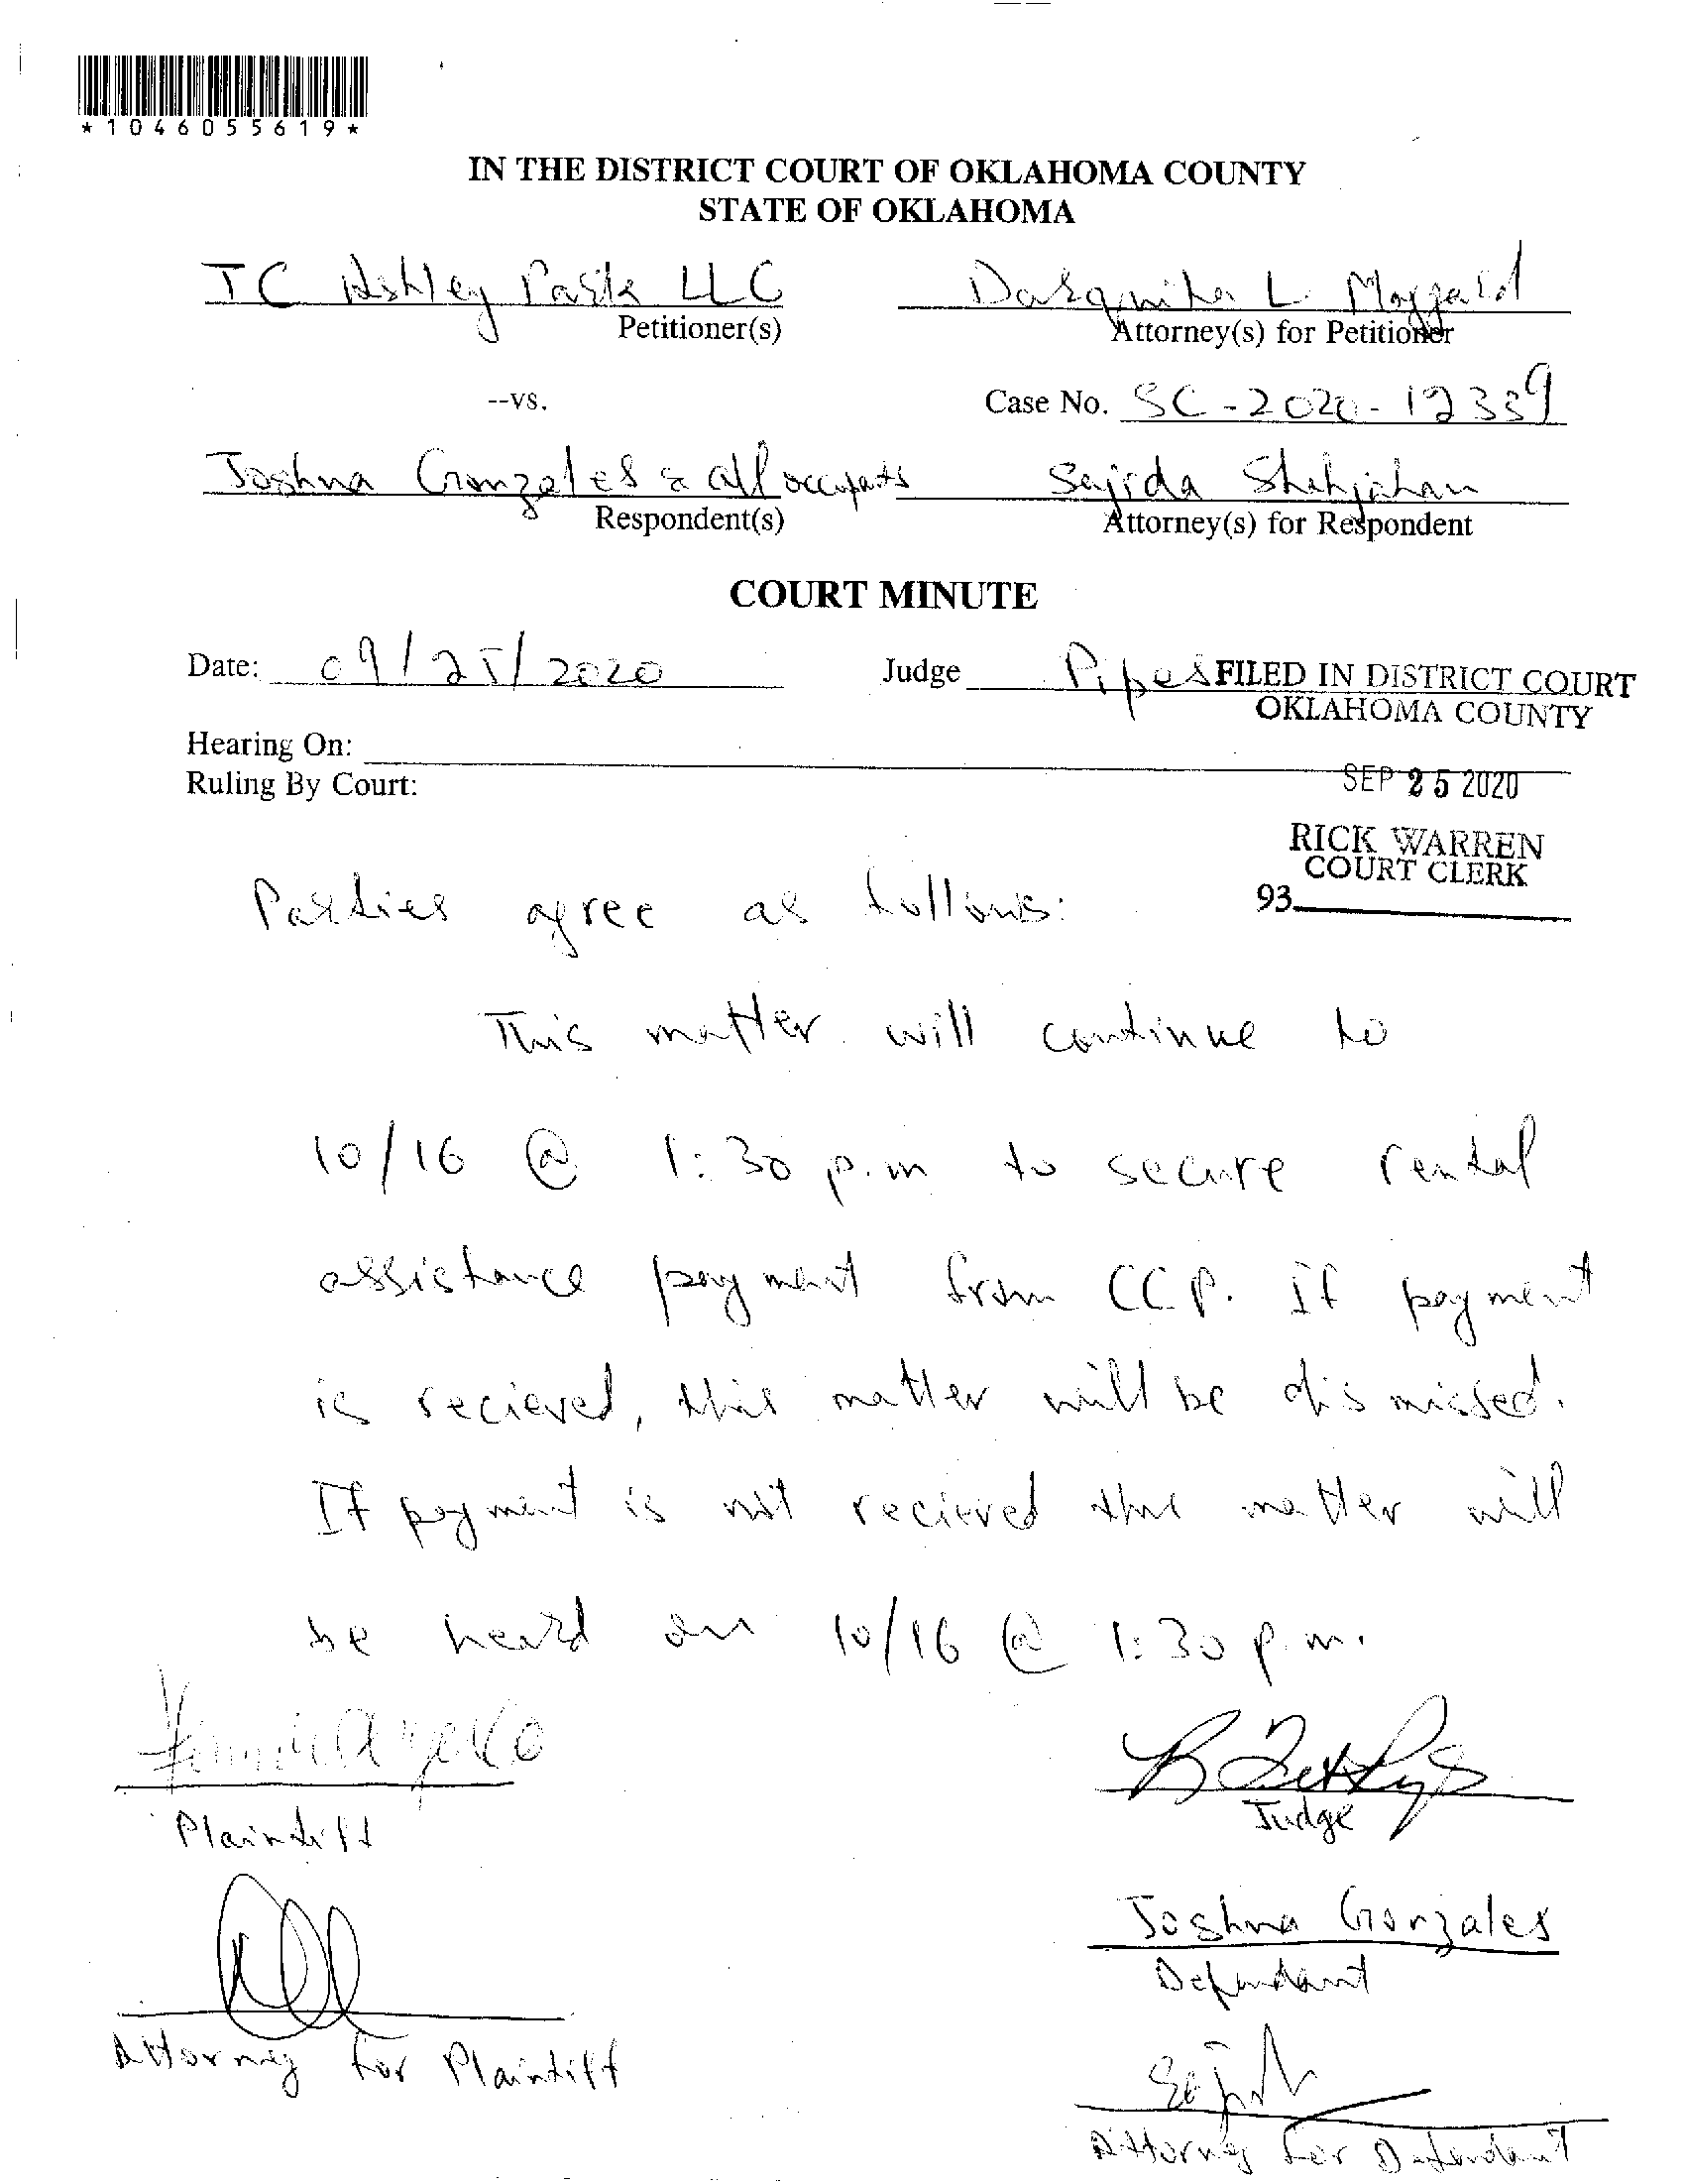 *1046055619*
IN THE DISTRICT COURT OF OKLAHOMA COUNTY
STATE OF OKLAHOMA
TC Ashley Park LLC
Petitioner(s)
Darquita L. Maggard
Attorney(s) for Petitioner
--vs.
Case No. SC-2020-12339
Joshua Gonzales & all occupants
Respondent(s)
Sajida Shahjahan
Attorney(s) for Respondent
COURT MINUTE
Date: 09/25/2020
Judge Pipes
FILED IN DISTRICT COURT
OKLAHOMA COUNTY
Hearing On:
Ruling By Court:
SEP 25 2020
RICK WARREN
COURT CLERK
93
Parties agree as follows:
This matter will continue to
10/16 @ 1:30 p.m to secure rental
assistance payment from CCP. If payment
is recieved, this matter will be dismissed.
If payment is not recieved this matter will
be heard on 10/16 @ 1:30 p.m.
Plaintiff
Judge
Joshua Gonzales
Defendant
Attorney for Plaintiff
Attorney for Defendant